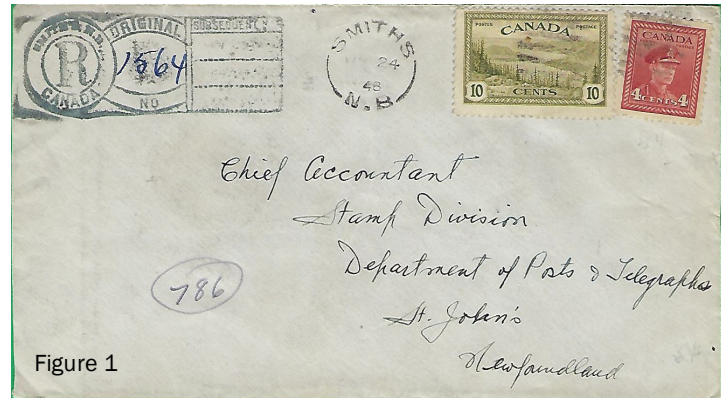 REGISTERED
R
CANADA
ORIGINAL
1564
NO
SUBSEQUENT
SMITHS
24
48
N.B.
POSTES POSTAGE
CANADA
10 CENTS 10
CANADA
4 CENTS 4
Chief Accountant
Stamp Division
Department of Posts & Telegraphs
St. John's
Newfoundland
786
Figure 1